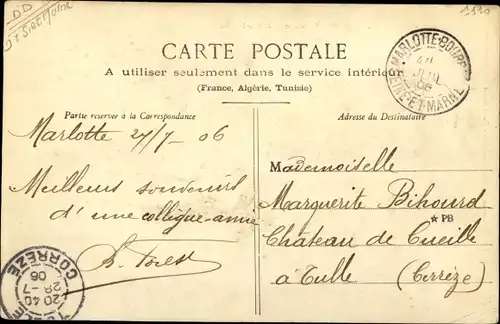 D D
S et Marne
1110
CARTE POSTALE
A utiliser seulement dans le service intérieur
(France, Algérie, Tunisie)
MARLOTTE-BOURR
06
SEINE-ET-MARNE
Partie réservée à la Correspondance
Adresse du Destinataire
Marlotte 27/7 - 06
Meilleurs souvenirs
d'une collègue-amie
Mademoiselle
Marguerite Bihourd
★ PB
Château de Cueille
à Tulle (Corrèze)
CORREZE
20 40
28-7
06